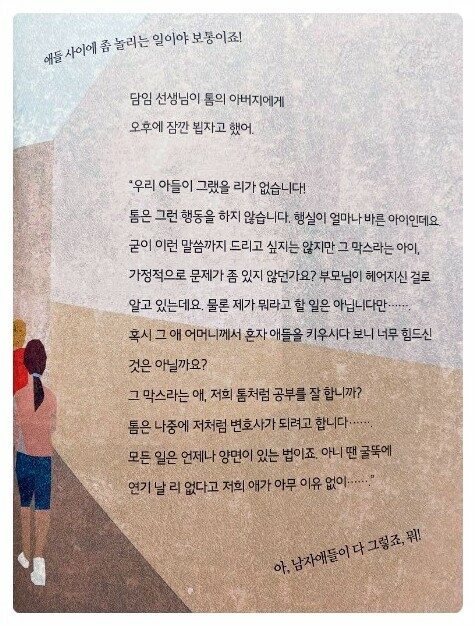 애들 사이에 좀 놀리는 일이야 보통이죠!
담임 선생님이 톰의 아버지에게
오후에 잠깐 뵙자고 했어.
"우리 아들이 그랬을 리가 없습니다!
톰은 그런 행동을 하지 않습니다. 행실이 얼마나 바른 아이인데요.
굳이 이런 말씀까지 드리고 싶지는 않지만 그 막스라는 아이,
가정적으로 문제가 좀 있지 않던가요? 부모님이 헤어지신 걸로
알고 있는데요. 물론 제가 뭐라고 할 일은 아닙니다만…….
혹시 그 애 어머니께서 혼자 애들을 키우시다 보니 너무 힘드신
것은 아닐까요?
그 막스라는 애, 저희 톰처럼 공부를 잘 합니까?
톰은 나중에 저처럼 변호사가 되려고 합니다……
모든 일은 언제나 양면이 있는 법이죠. 아니 땐 굴뚝에
연기 날 리 없다고 저희 애가 아무 이유 없이……"
아, 남자애들이 다 그렇죠, 뭐!